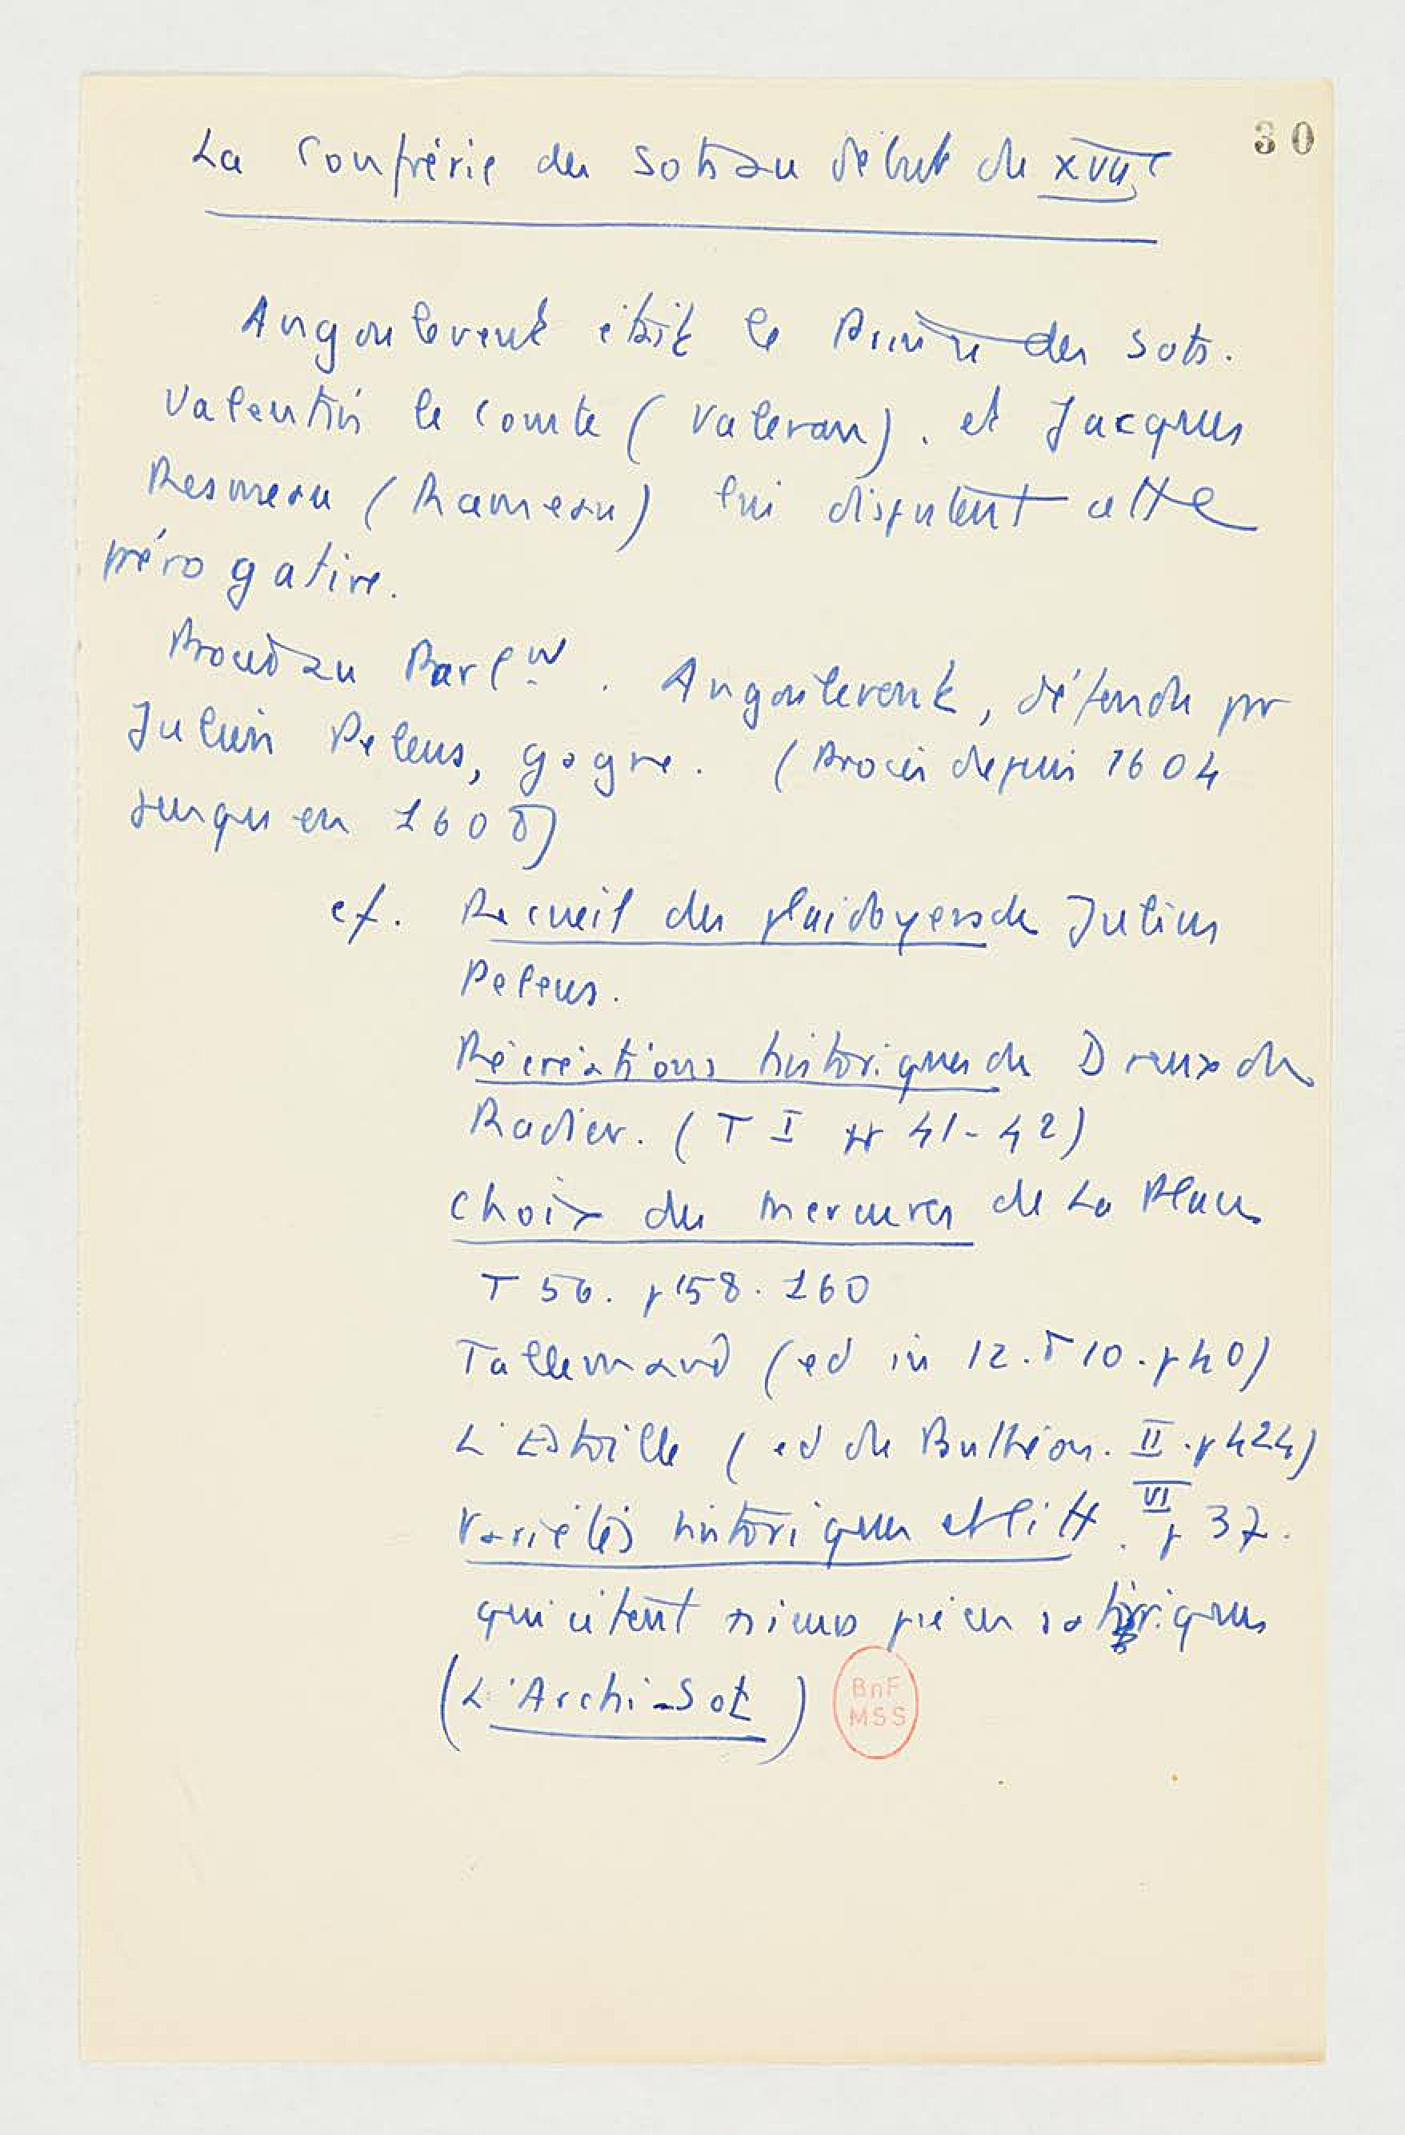 30
La Confrérie des Sots au début du XVIIe
Angoulevent était le Prince des Sots.
Valentin le Comte (Valeran). et Jacques
Resneau (Rameau) lui disputent cette
prérogative.
Procès au Parlt. Angoulevent, défendu par
Julien Peleus, gagne. (Procès depuis 1604
jusqu'en 1608)
cf. Recueil des plaidoyers de Julien
Peleus.
Récréations historiques de Dreux du
Radier. (T I pp 41-42)
Choix des Mercures de La Place
T 56. p 158. 160
Tallemand (ed in 12. T 10. p 40)
L'Estoille (ed de Bulhéon. II. p 424)
Variétés historiques et litt. VI p 37.
qui citent pièces satiriques
(L'Archi-Sot)
BnF
MSS